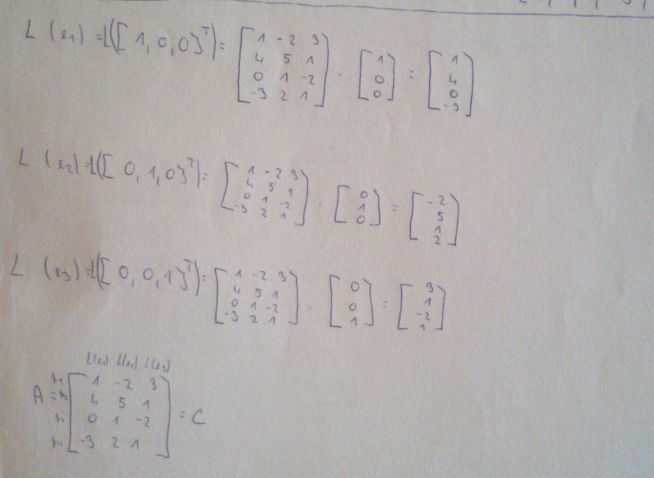 L (e1) = L([1, 0, 0]^T) = [1 -2 3; 4 5 1; 0 1 -2; -3 2 1] · [1; 0; 0] = [1; 4; 0; -3]
L (e2) = L([0, 1, 0]^T) = [1 -2 3; 4 5 1; 0 1 -2; -3 2 1] · [0; 1; 0] = [-2; 5; 1; 2]
L (e3) = L([0, 0, 1]^T) = [1 -2 3; 4 5 1; 0 1 -2; -3 2 1] · [0; 0; 1] = [3; 1; -2; 1]
A = [1 -2 3; 4 5 1; 0 1 -2; -3 2 1] = C